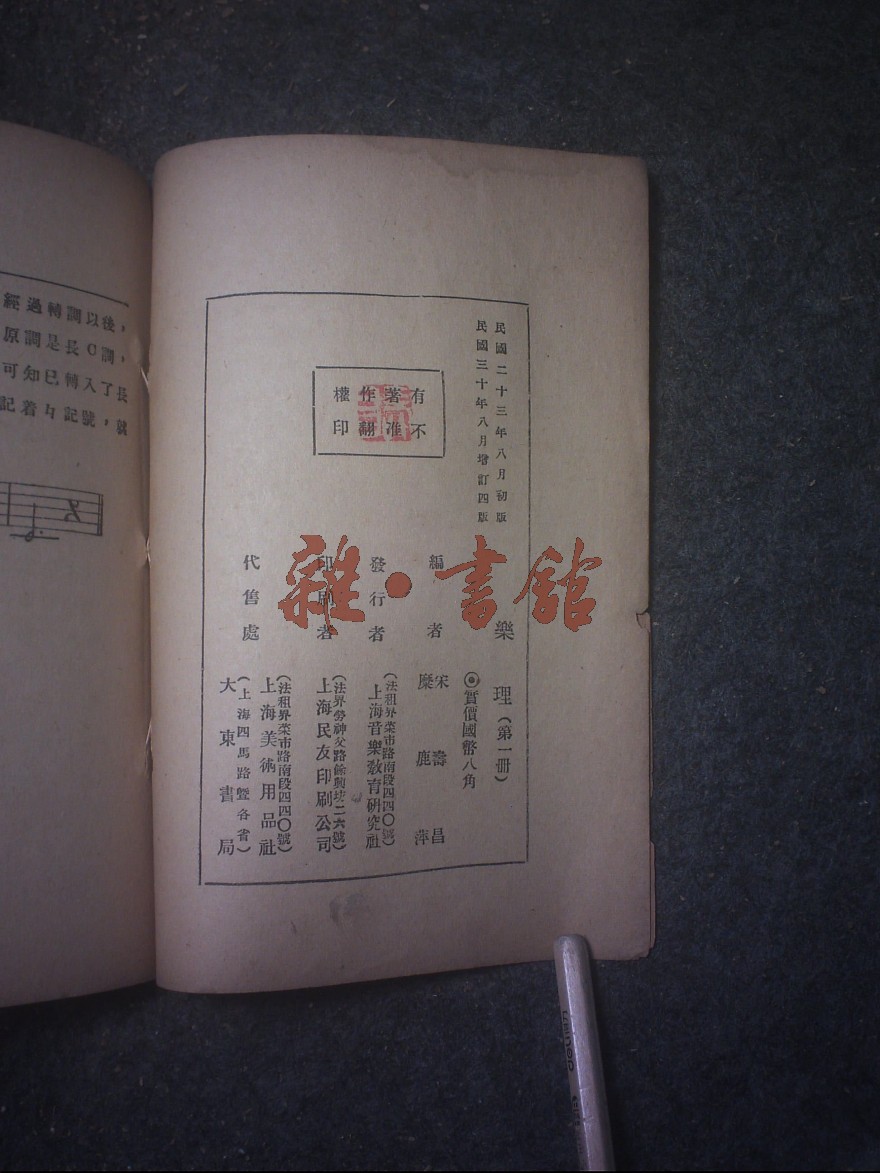 經過轉調以後，
原調是長C調，
可知已轉入了長
記着♮記號，就
民國二十三年八月初版
民國三十年八月增訂四版
有著作權
不准翻印
樂理（第一冊）
實價國幣八角
編者
宋壽昌
糜鹿萍
發行者
（法租界菜市路南段四四〇號）
上海音樂教育研究社
印刷者
（法界勞神父路餘興坊二六號）
上海民友印刷公司
代售處
（法租界菜市路南段四四〇號）
上海美術用品社
（上海四馬路暨各省）
大東書局
雜·書館
deli